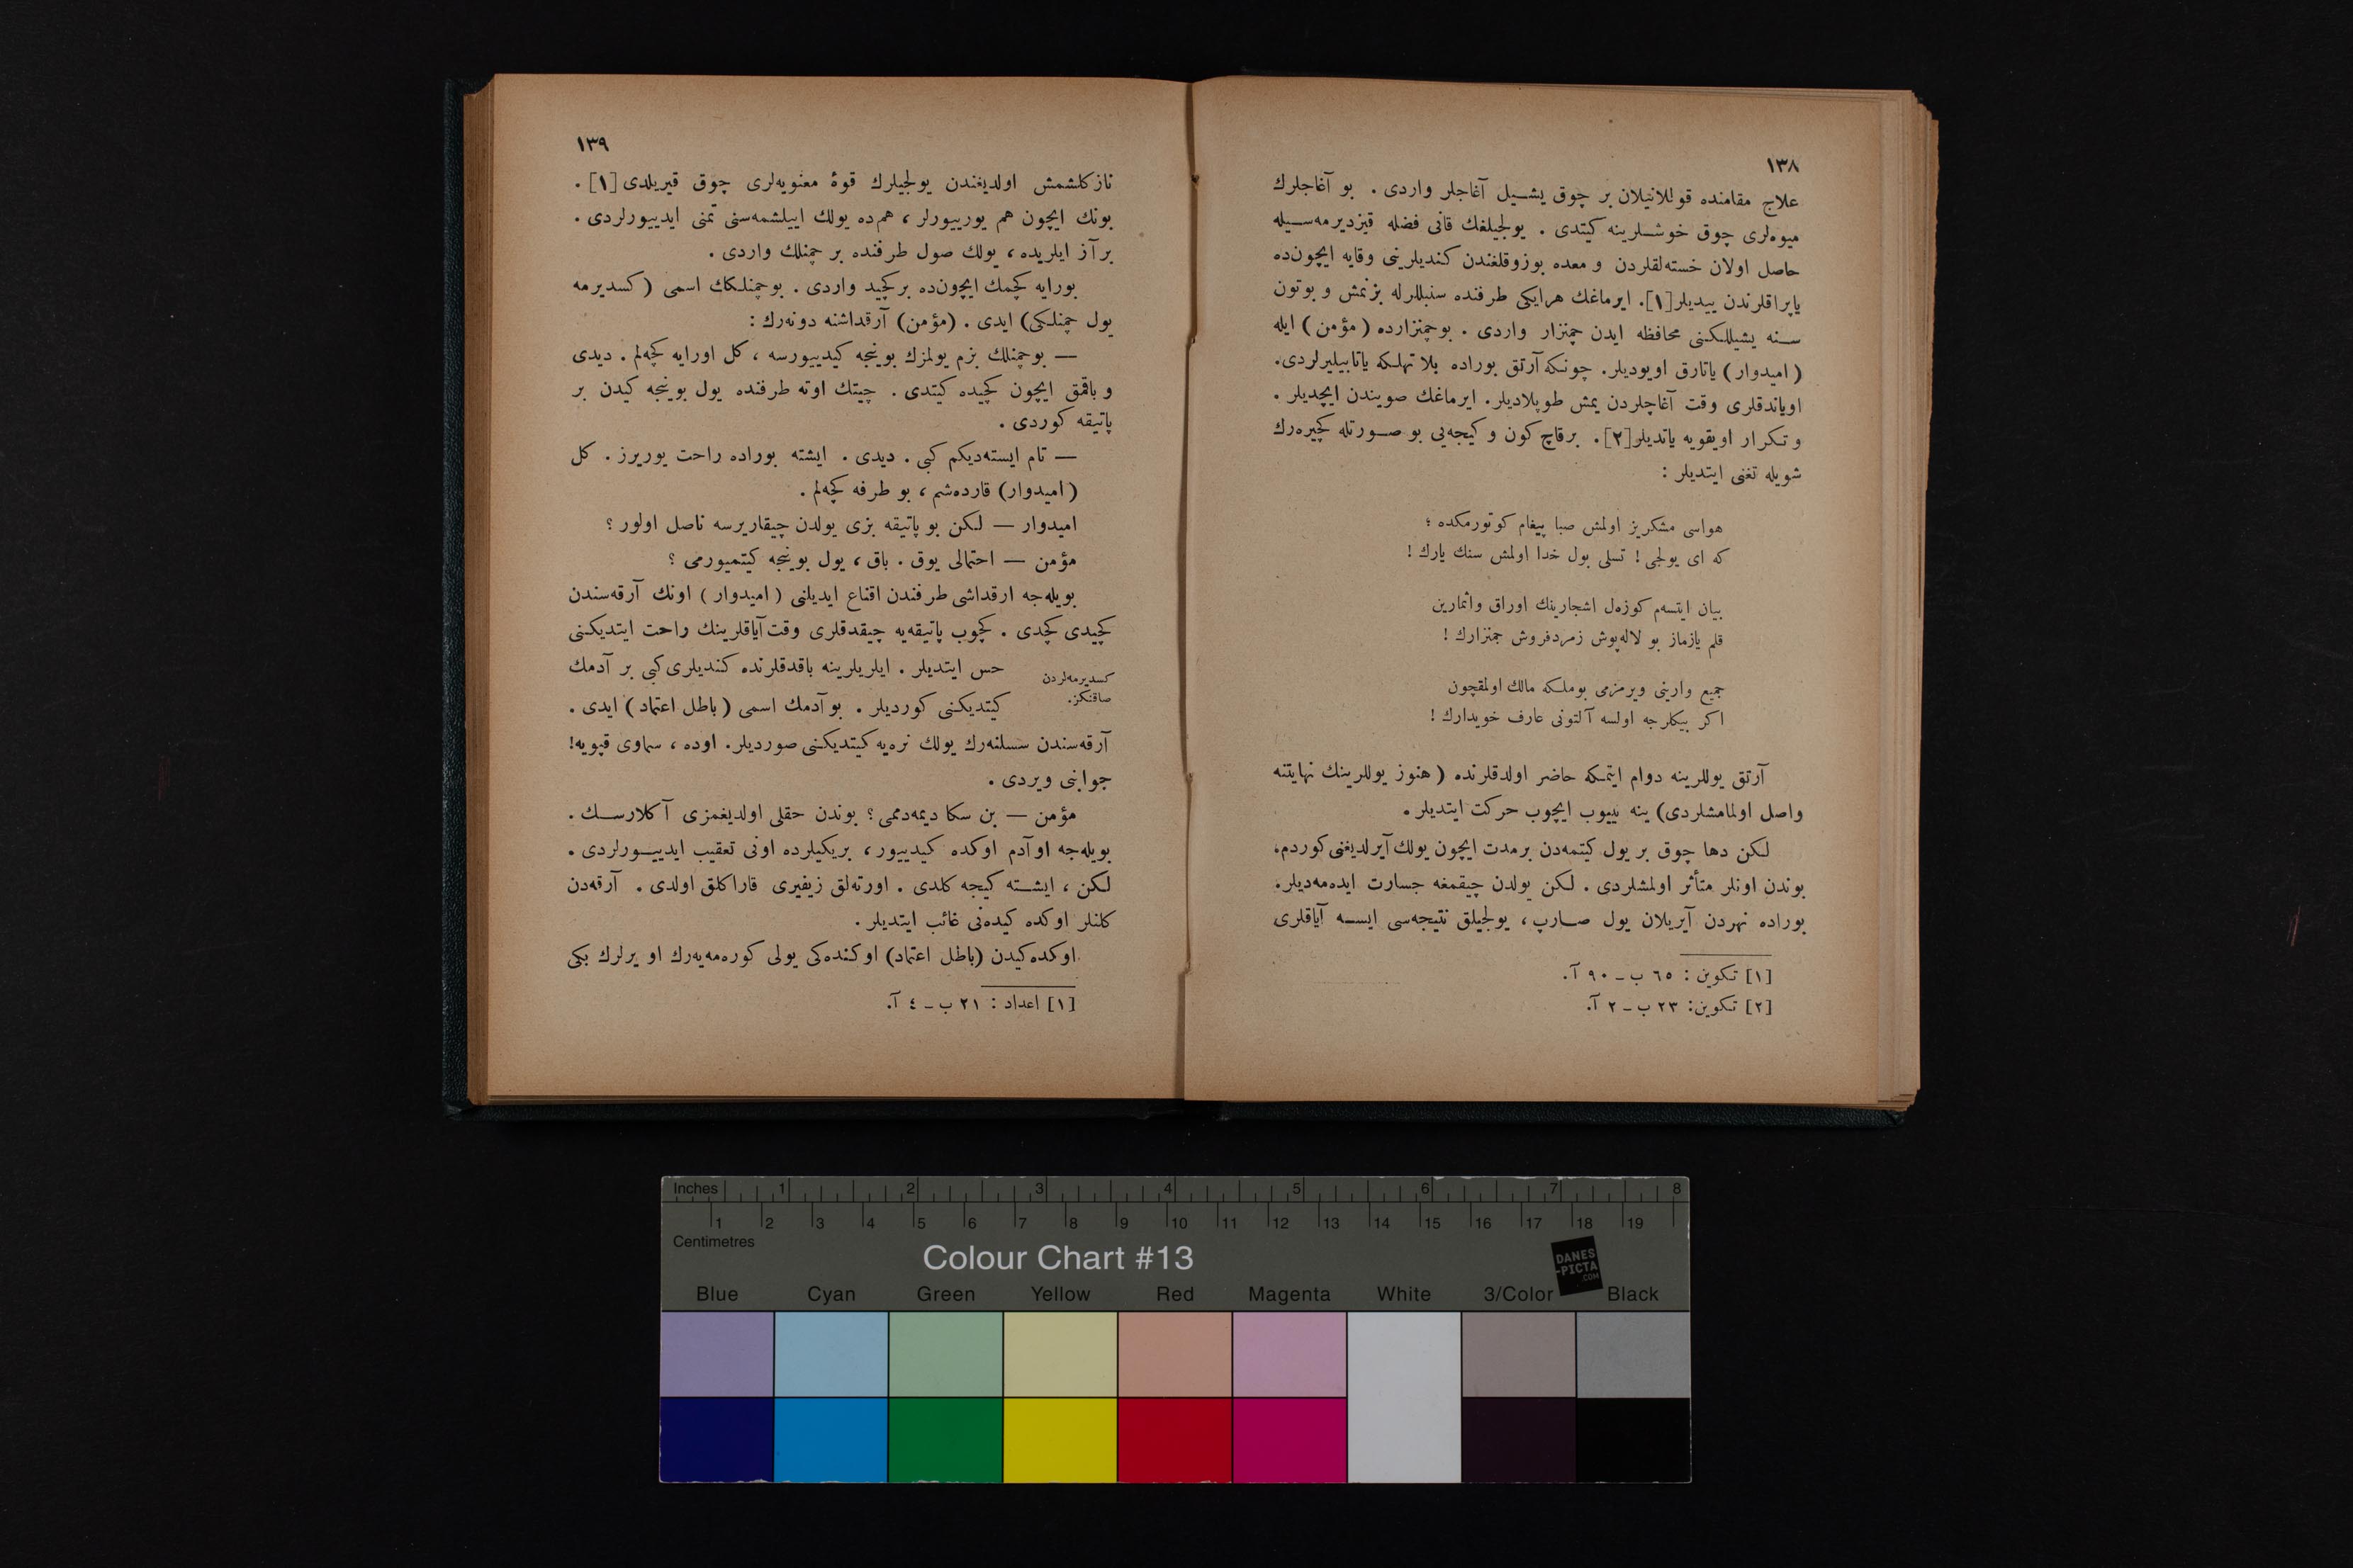 ١٣٨
علاج مقامنده قوللانيلان بر چوق يشيل آغاجلر واردی . بو آغاجلرك
ميوه‌لری چوق خوشلرينه كيتدی . يولجيلغك قانی فضله قيزديرمه‌سيله
حاصل اولان خسته‌لقلردن و معده بوزوقلغندن كنديلرينی وقايه ايچون‌ده
ياپراقلرندن ييديلر[١]. ايرماغك هرايكی طرفنده سنبللرله بزنمش و بوتون
سنه يشيللكنی محافظه ايدن چمنزار واردی . بوچمنزارده (مؤمن) ايله
(اميدوار) ياتارق اويوديلر. چونكه آرتق بوراده بلا تهلكه ياتابيليرلردی.
اوياندقلری وقت آغاچلردن يمش طوپلاديلر. ايرماغك صويندن ايچديلر .
و تكرار اويقويه ياتديلر[٢]. برقاچ كون و كيجه‌يی بو صورتله كچيره‌رك
شويله تغنی ايتديلر :
هواسی مشكريز اولمش صبا پيغام كوتورمكده ؛
كه ای يولجی ! تسلی بول خدا اولمش سنك يارك !
بيان ايتسه‌م كوزه‌ل اشجارينك اوراق واثمارين
قلم يازماز بو لاله‌پوش زمردفروش چمنزارك !
جميع وارينی ويرمزمی بوملكه مالك اولمقچون
اكر بيكلرجه اولسه آلتونی عارف خويدارك !
آرتق يوللرينه دوام ايتمكه حاضر اولدقلرنده (هنوز يوللرينك نهايتنه
واصل اولمامشلردی) ينه ييوب ايچوب حركت ايتديلر .
لكن دها چوق بر يول كيتمه‌دن برمدت ايچون يولك آيرلديغنی كوردم،
بوندن اونلر متأثر اولمشلردی . لكن يولدن چيقمغه جسارت ايده‌مه‌ديلر.
بوراده نهردن آيريلان يول صارپ ، يولجيلق نتيجه‌سی ايسه آياقلری
[١] تكوين : ٦٥ ب ـ ٩٠ آ.
[٢] تكوين: ٢٣ ب ـ ٢ آ.
١٣٩
نازكلشمش اولديغندن يولجيلرك قوۀ معنويه‌لری چوق قيريلدی [١] .
بونك ايچون هم يورييورلر ، هم‌ده يولك اييلشمه‌سنی تمنی ايدييورلردی .
برآز ايلريده ، يولك صول طرفنده بر چمنلك واردی .
بورايه كچمك ايچون‌ده بركچيد واردی . بوچمنلكك اسمی (كسديرمه
يول چمنلكی) ايدی . (مؤمن) آرقداشنه دونه‌رك :
— بوچمنلك بزم يولمزك بوينجه كيدييورسه ، كل اورايه كچه‌لم . ديدی
و باقمق ايچون كچيده كيتدی . چيتك اوته طرفنده يول بوينجه كيدن بر
پاتيقه كوردی .
— تام ايسته‌ديكم كبی . ديدی . ايشته بوراده راحت يوريرز . كل
(اميدوار) قارده‌شم ، بو طرفه كچه‌لم .
اميدوار — لكن بو پاتيقه بزی يولدن چيقاريرسه ناصل اولور ؟
مؤمن — احتمالی يوق . باق ، يول بوينجه كيتميورمی ؟
بويله‌جه ارقداشی طرفندن اقناع ايديلنی (اميدوار) اونك آرقه‌سندن
كچيدی كچدی . كچوب پاتيقه‌يه چيقدقلری وقت آياقلرينك راحت ايتديكنی
حس ايتديلر . ايلريلرينه باقدقلرنده كنديلری كبی بر آدمك
كسديرمه‌لردن
صاقنكز.
كيتديكنی كورديلر . بو آدمك اسمی (باطل اعتماد) ايدی .
آرقه‌سندن سسلنه‌رك يولك نره‌يه كيتديكنی صورديلر. اوده ، سماوی قپويه!
جوابنی ويردی .
مؤمن — بن سكا ديمه‌دممی ؟ بوندن حقلی اولديغمزی آكلارسك .
بويله‌جه اوآدم اوكده كيدييور ، بريكيلرده اونی تعقيب ايدييورلردی .
لكن ، ايشته كيجه كلدی . اورته‌لق زيفيری قاراكلق اولدی . آرقه‌دن
كلنلر اوكده كيده‌نی غائب ايتديلر .
اوكده كيدن (باطل اعتماد) اوكنده‌كی يولی كوره‌مه‌يه‌رك او يرلرك بكی
[١] اعداد : ٢١ ب ـ ٤ آ.
Inches 1 2 3 4 5 6 7 8
1 2 3 4 5 6 7 8 9 10 11 12 13 14 15 16 17 18 19
Centimetres
Colour Chart #13
DANES
-PICTA
.COM
Blue Cyan Green Yellow Red Magenta White 3/Color Black